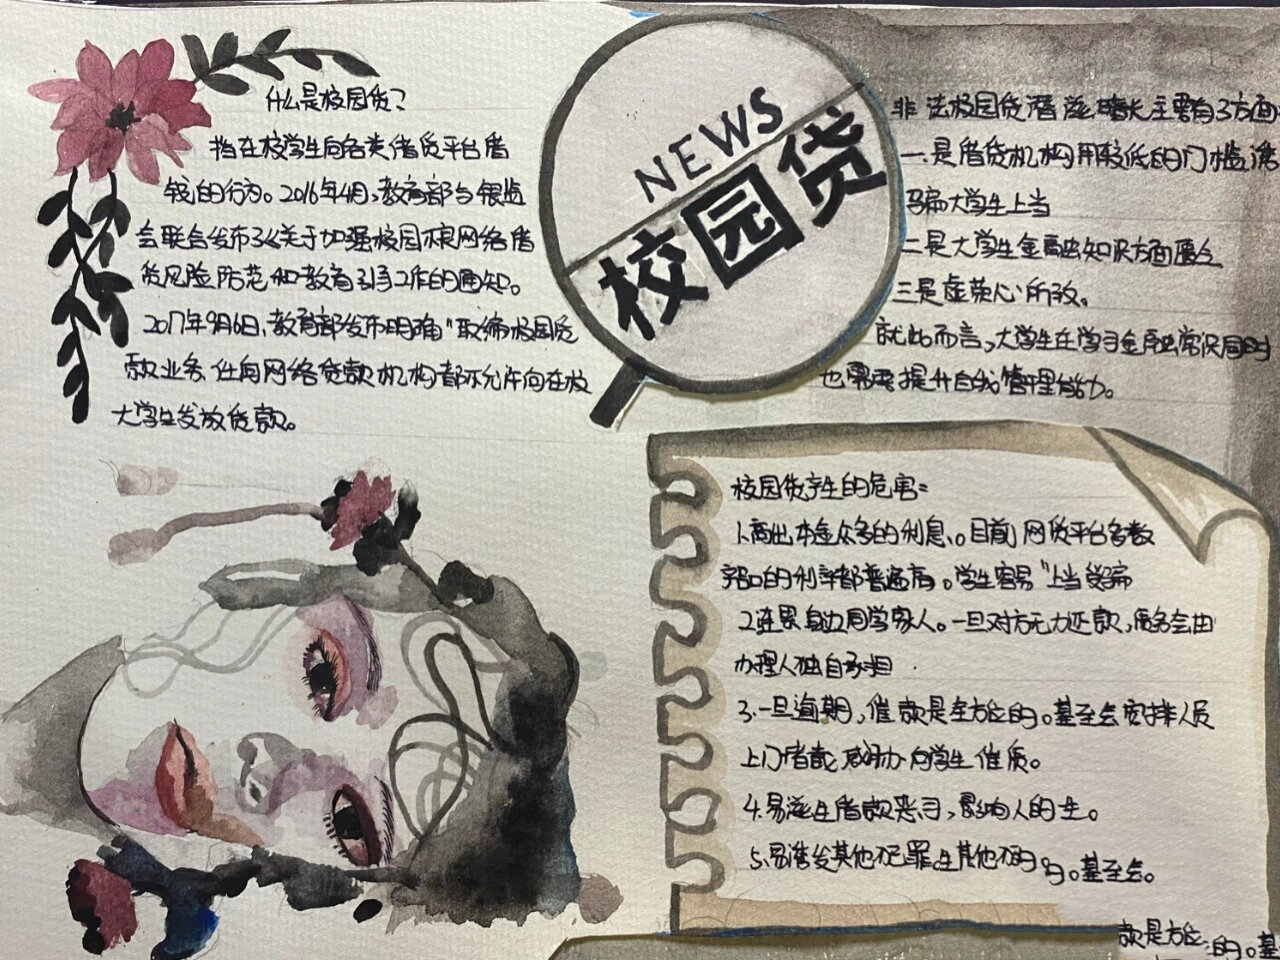 什么是校园贷？
指在校学生向各类借贷平台借
钱的行为。2016年4月，教育部与银监
会联合发布了《关于加强校园不良网络借
贷风险防范和教育引导工作的通知。
2017年9月6日，教育部发布明确"取缔校园贷
款业务，任何网络贷款机构都不允许向在校
大学生发放贷款。
NEWS
校园贷
非法校园贷潜滋暗长主要有3方面
一.是借贷机构用较低的门槛诱
骗大学生上当
二是大学生金融知识方面匮乏
三是虚荣心所致。
就此而言，大学生在学习金融常识同时
也需要提升自我管理能力。
校园贷产生的危害:
1.高出本金众多的利息。目前网贷平台多数
的利率都普遍高。学生容易"上当受骗
2.连累身边同学家人。一旦对方无力还款，
办理人独自承担
3.一旦逾期，催款是全方位的。甚至会安排人员
上门 威胁 向学生催 。
4.易滋生借款恶习，影响人的生。
5.易诱发其他犯罪 其他不 的。甚至会。
款是方位 的。甚